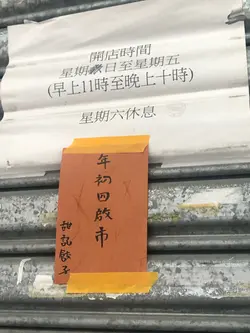 開店時間
星期日至星期五
(早上11時至晚上十時)
星期六休息
年初四啟市
甜記餃子